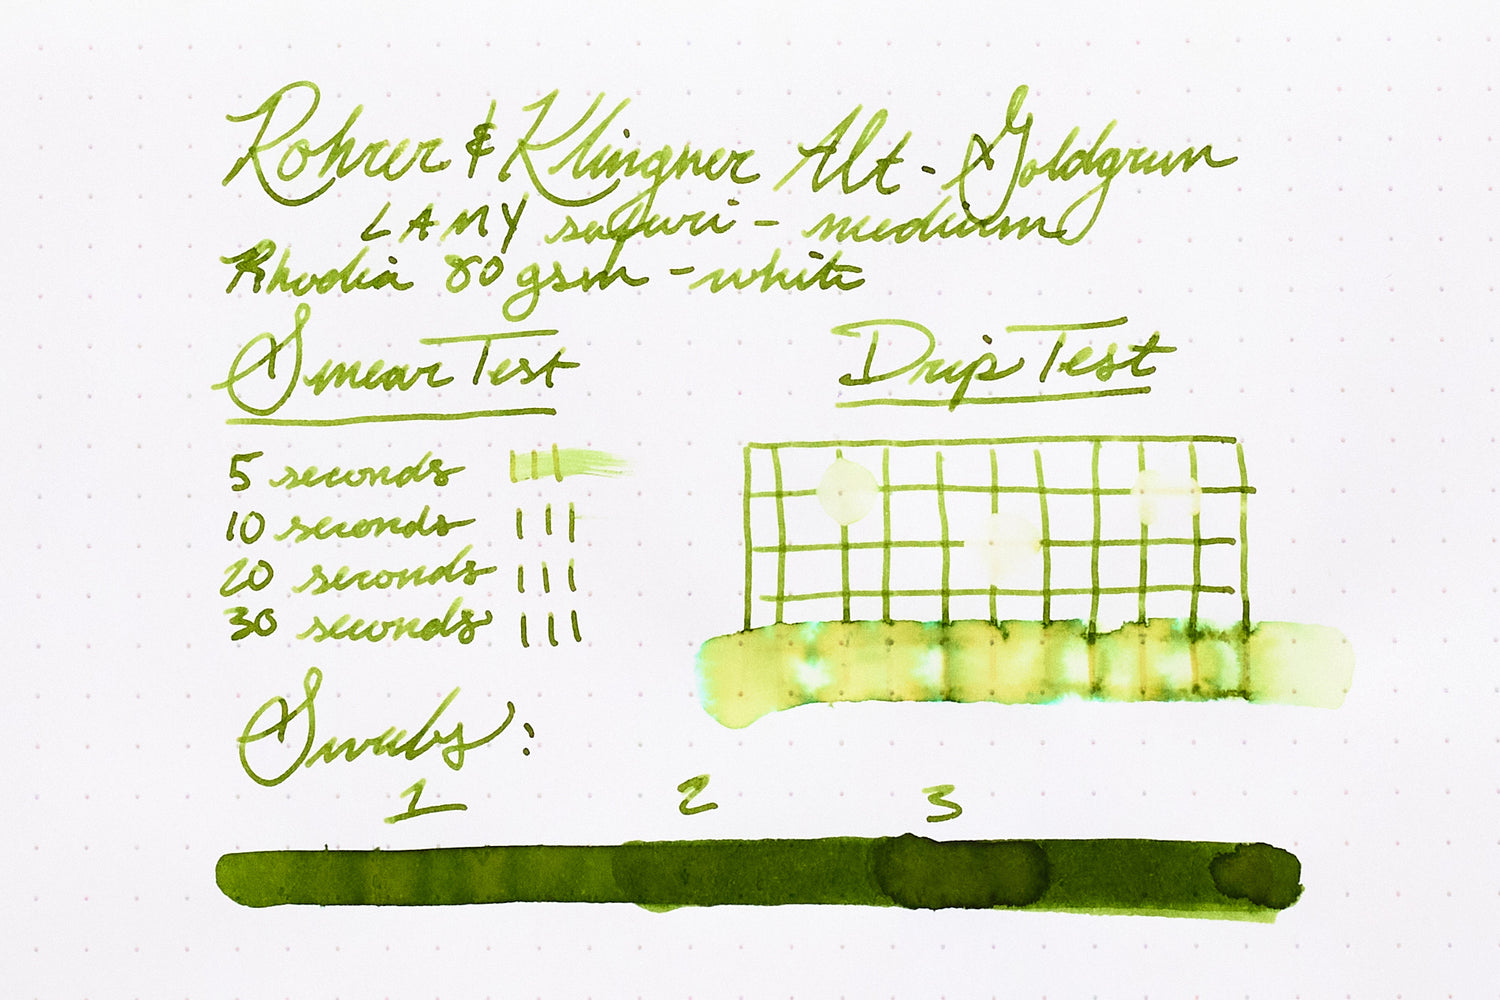 Rohrer & Klingner Alt-Goldgrun
LAMY safari - medium
Rhodia 80 gsm - white
Smear Test
Drip Test
5 seconds
10 seconds
20 seconds
30 seconds
Swabs:
1 2 3